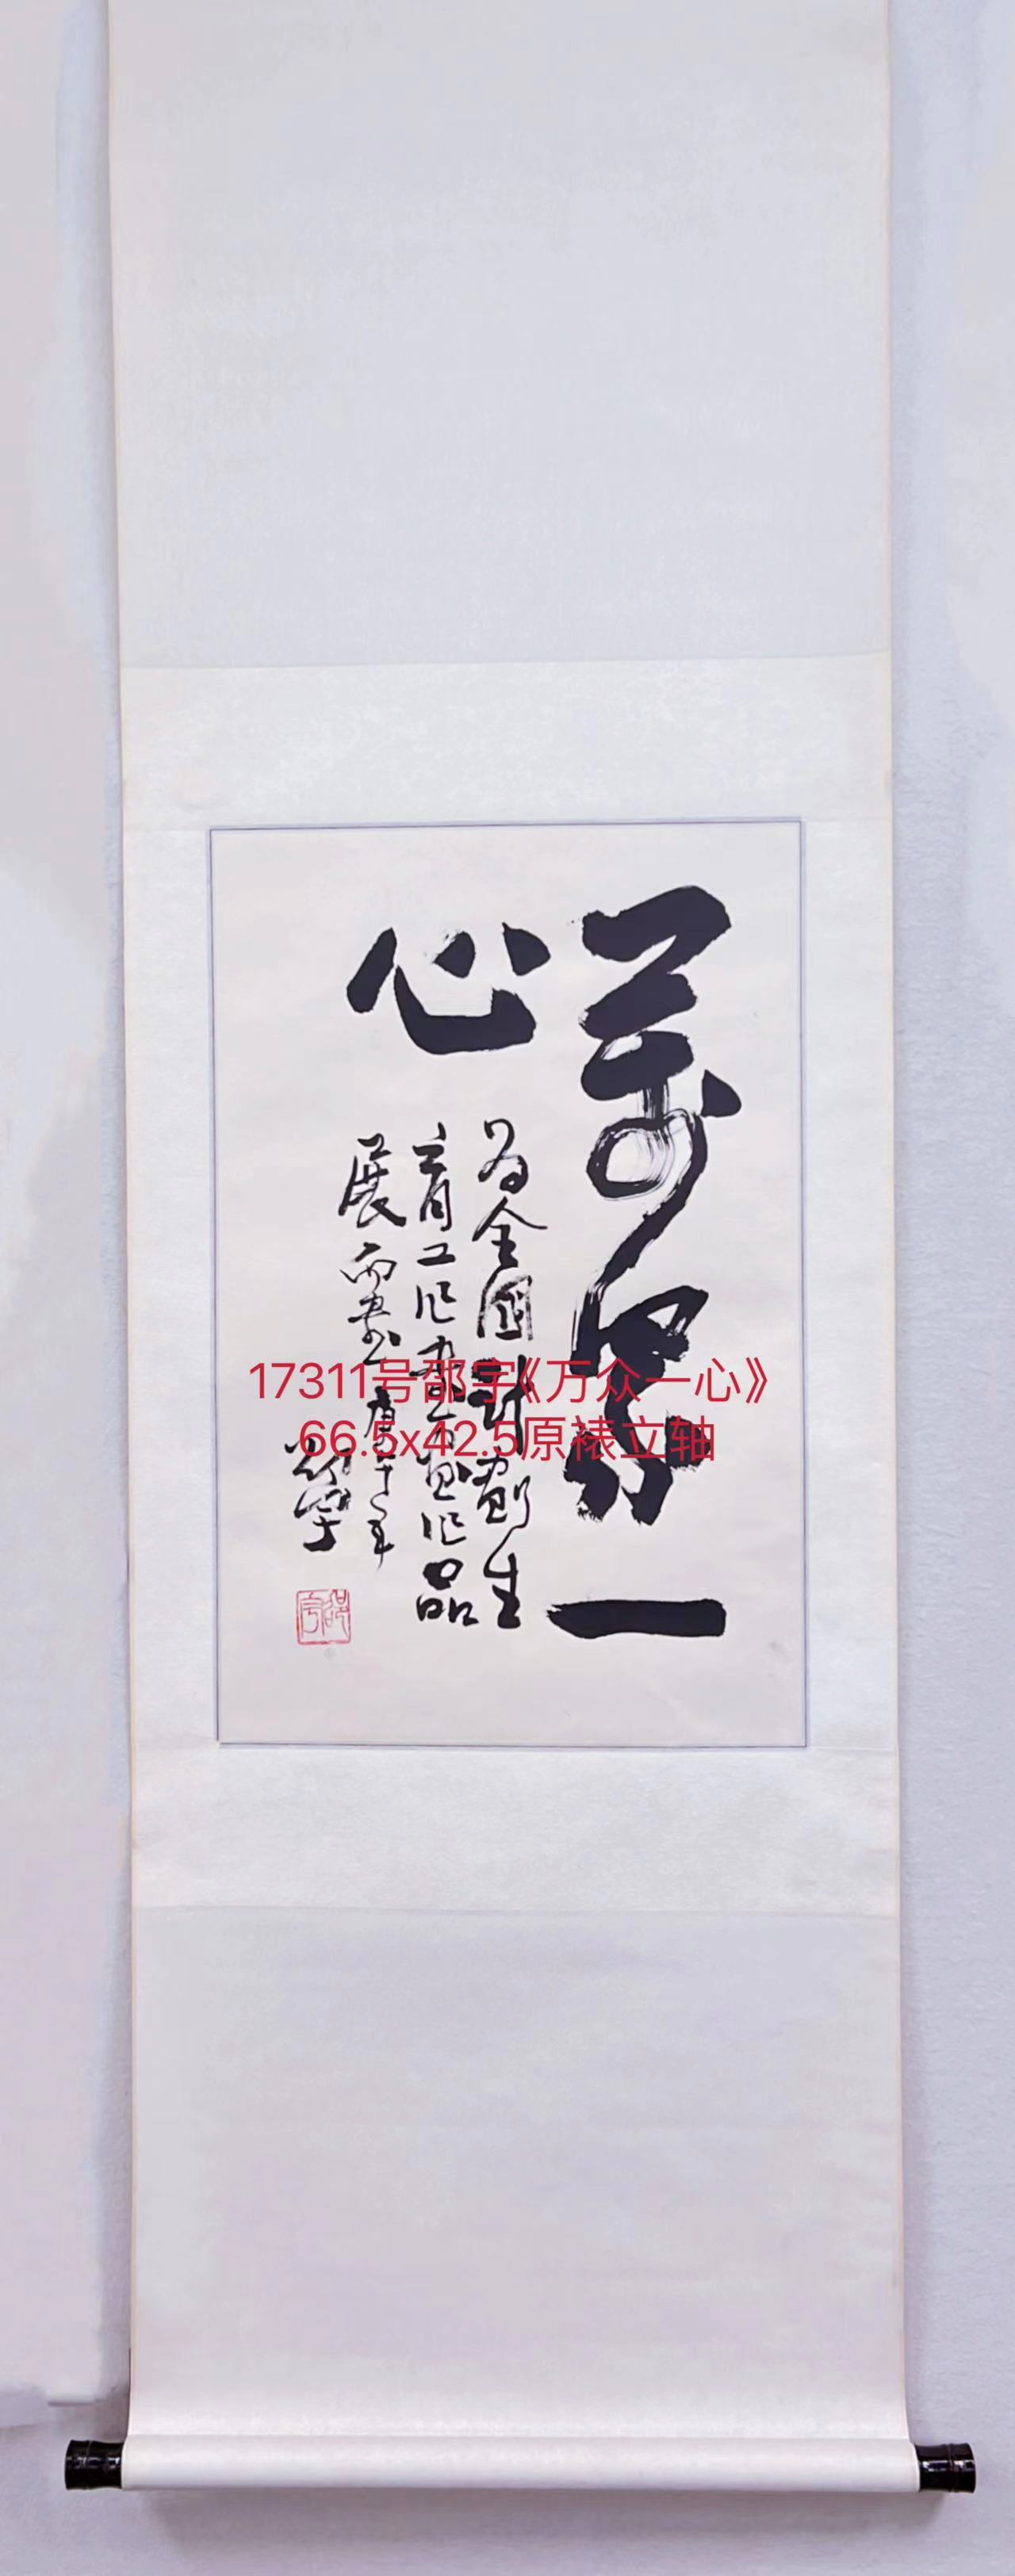 萬眾一
心
为全國計劃生
育工作書画作品
展而書 庚午年
邵宇
邵宇
17311号邵宇《万众一心》
66.5x42.5原裱立轴